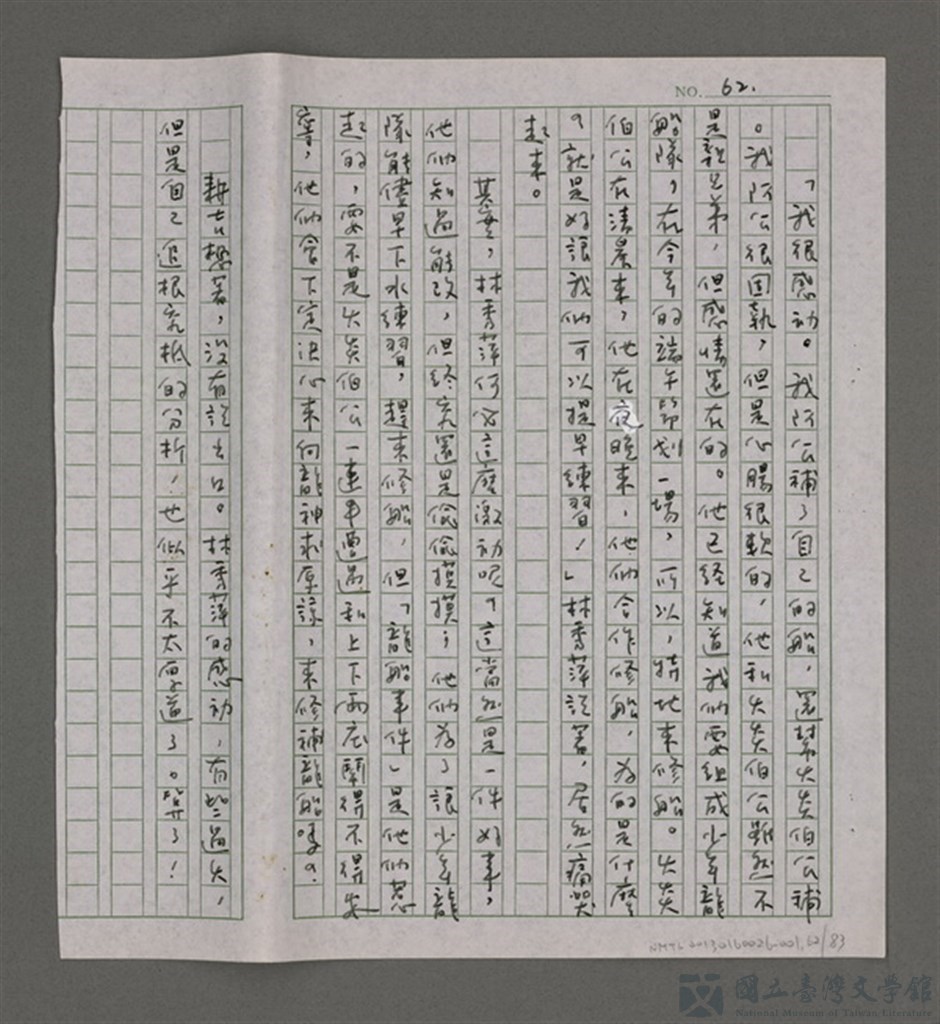 NO. 62.
「我很感动。我阿公補了自己的船，還幫火炎伯公補
。我阿公很固執，但是心腸很軟的，他和火炎伯公雖然不
是親兄弟，但感情還在的。他已経知道我们要組成少年龍
船隊，在今年的端午節划一場，所以，特地来修船。火炎
伯公在清晨来，他在夜晚来，他们合作修船，为的是什麼
？就是好讓我们可以提早練習！」林秀萍説著，居然痛哭
起来。
其實，林秀萍何必這麼激动呢？這當然是一件好事，
他们知過能改，但终究還是偷偷摸摸；他们为了讓少年龍
隊能儘早下水練習，趕来修船，但「龍船事件」是他们惹
起的，要不是火炎伯公一連串遭遇和上下兩庄鬧得不得安
寧，他们會下定決心来向龍神求原諒，来修補龍船嗎？
耕土想著，没有説出口。林秀萍的感动，有些過火，
但是自己追根究柢的分析！也似乎不太厚道了。算了！
NMTL20130160026-001,62/83
國立臺灣文學館
National Museum of Taiwan Literature